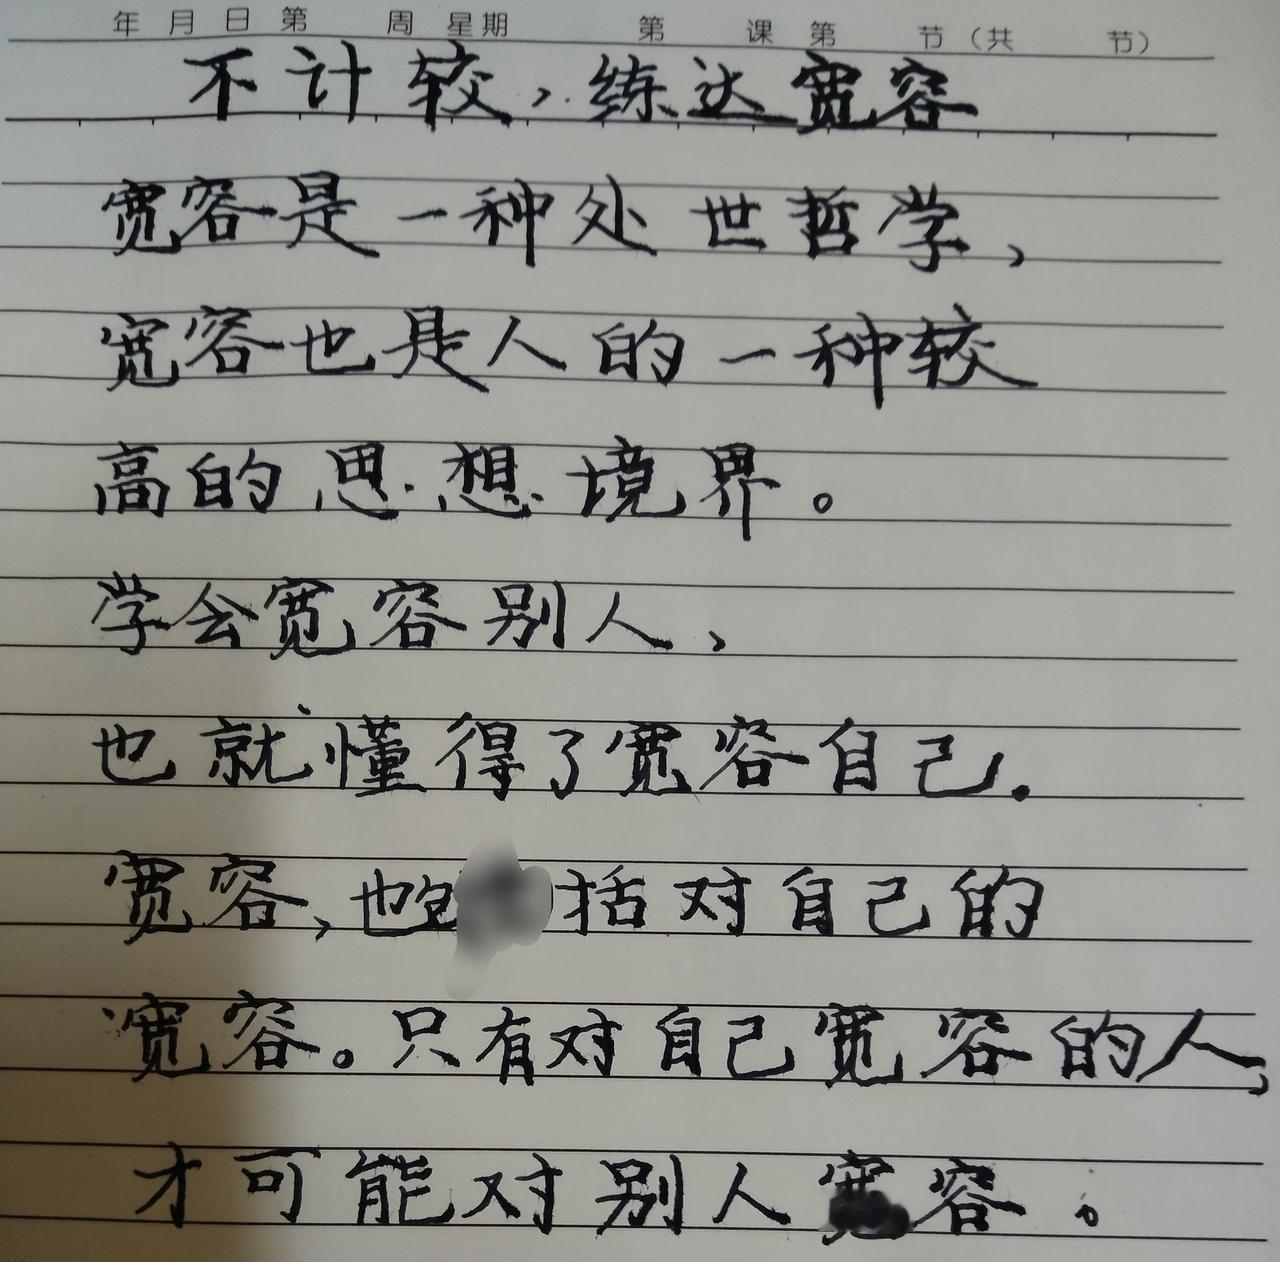 年 月 日 第 周 星期 第 课 第 节（共 节）
不计较，练达宽容
宽容是一种处世哲学，
宽容也是人的一种较
高的思想境界。
学会宽容别人，
也就懂得了宽容自己.
宽容，也包括对自己的
宽容。只有对自己宽容的人，
才可能对别人宽容。